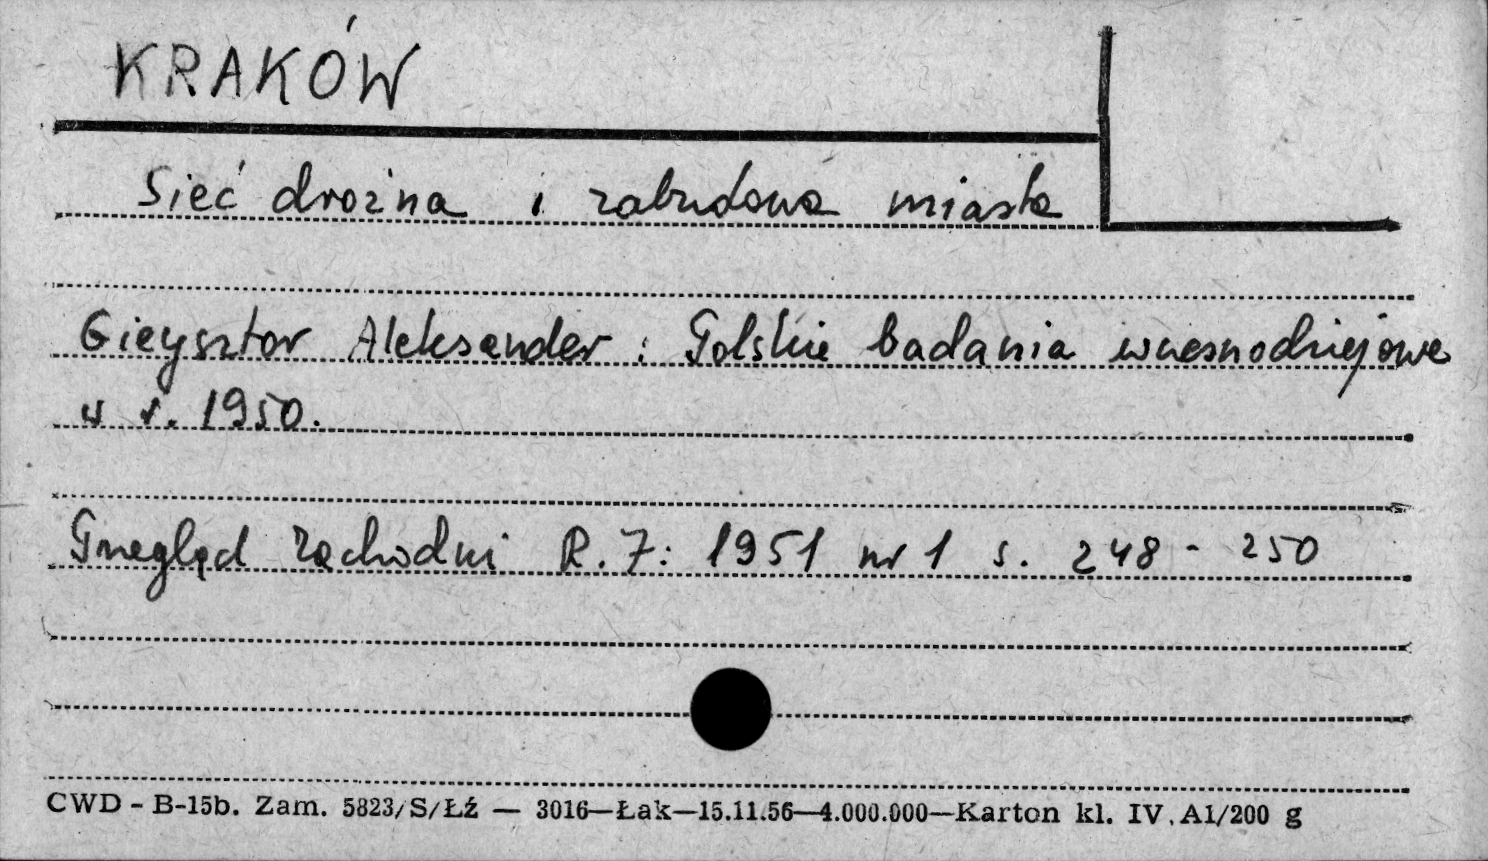 KRAKÓW
Sieć drożna i zabudowa miasta
Gieysztor Aleksander : Polskie badania wczesnodziejowe
w r. 1950.
Przegląd Zachodni R. 7: 1951 nr 1 s. 248 - 250
CWD - B-15b. Zam. 5823/S/Łź — 3016—Łak—15.11.56—4.000.000—Karton kl. IV, A1/200 g